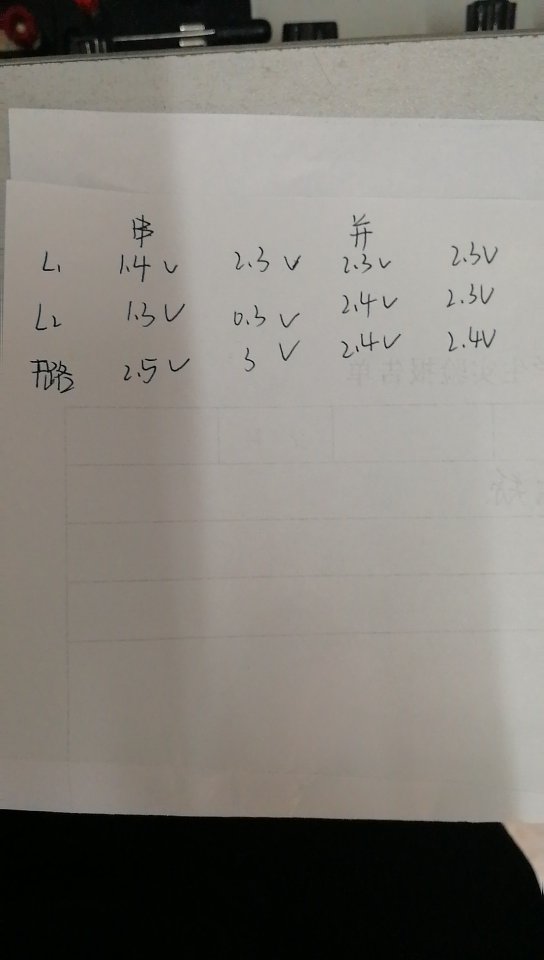 串 并
L₁ 1.4V 2.3V 2.3V 2.3V
L₂ 1.3V 0.3V 2.4V 2.3V
2.5V 3V 2.4V 2.4V
实验报告单